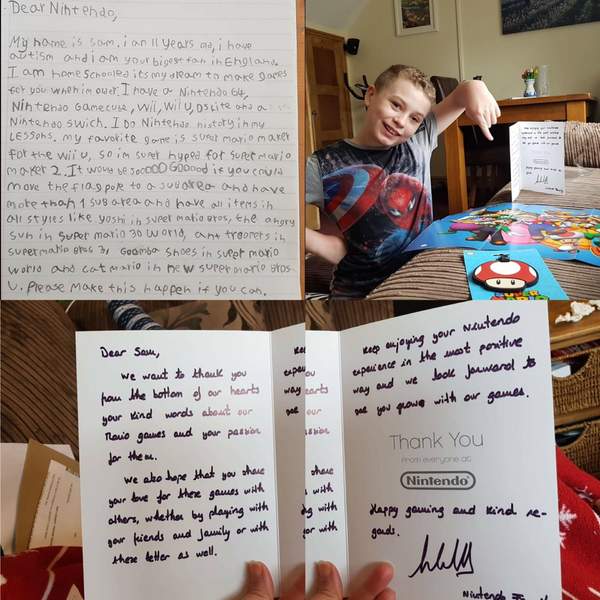 Dear Nintendo,
My name is sam. i an 11 years old, i have
autism and i am your biggest fan in England.
I am homeschooled its my dream to make games
for you when im over. I have a Nintendo 64,
Nintendo Gamecube, Wii, Wii U, DSlite and a
Nintendo swich. I do Nintendo history in my
Lessons. my favorite game is super mario maker
for the wii u, so im super hyped for super mario
maker 2. It would be sooooo Gooood if you could
move the flagpole to a subarea and have
more than 1 subarea and have all items in
all styles like yoshi in super mario Bros, the angry
sun in super mario 3D World, ant troopers in
super mario Bros 3, Goomba shoes in super mario
World and cat mario in new super mario Bros
U. Please make this happen if you can.
Dear Sam,
We want to thank you
from the bottom of our hearts
your kind words about our
Mario games and your passion
for them.
We also hope that you share
your love for these games with
others, whether by playing with
your friends and family or with
these letter as well.
Keep enjoying your Nintendo
experience in the most positive
way and we look forward to
see you grow with our games.
Thank You
From everyone at
Nintendo
Happy gaming and kind re-
gards.
Nintendo